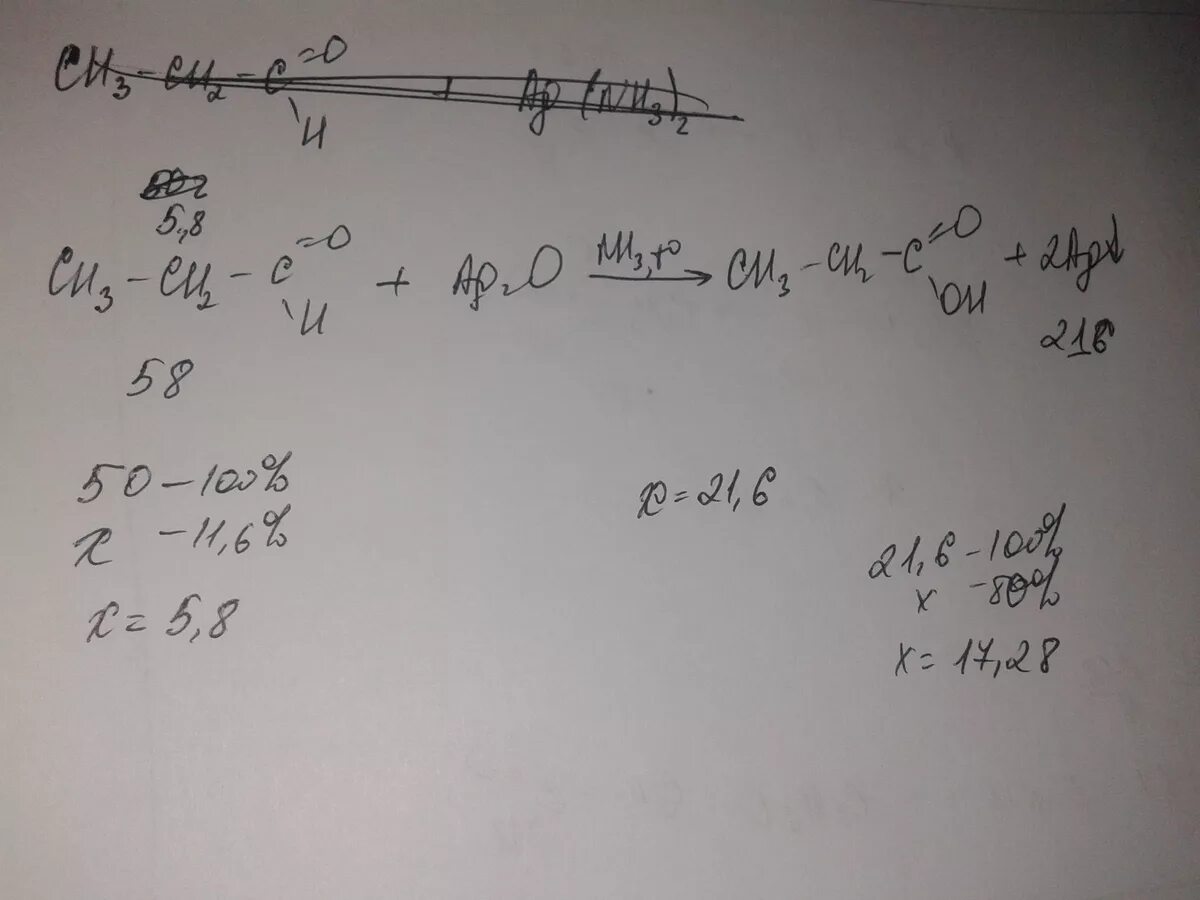 CH₃ – CH₂ – C =O \ H + Ag (NH₃)₂
5,8
CH₃ – CH₂ – C =O \ H + Ag₂O NH₃, t° → CH₃ – CH₂ – C =O \ OH + 2Ag↓
58
216
50 – 100%
x – 11,6%
x = 5,8
x = 21,6
21,6 – 100%
x – 80%
x = 17,28